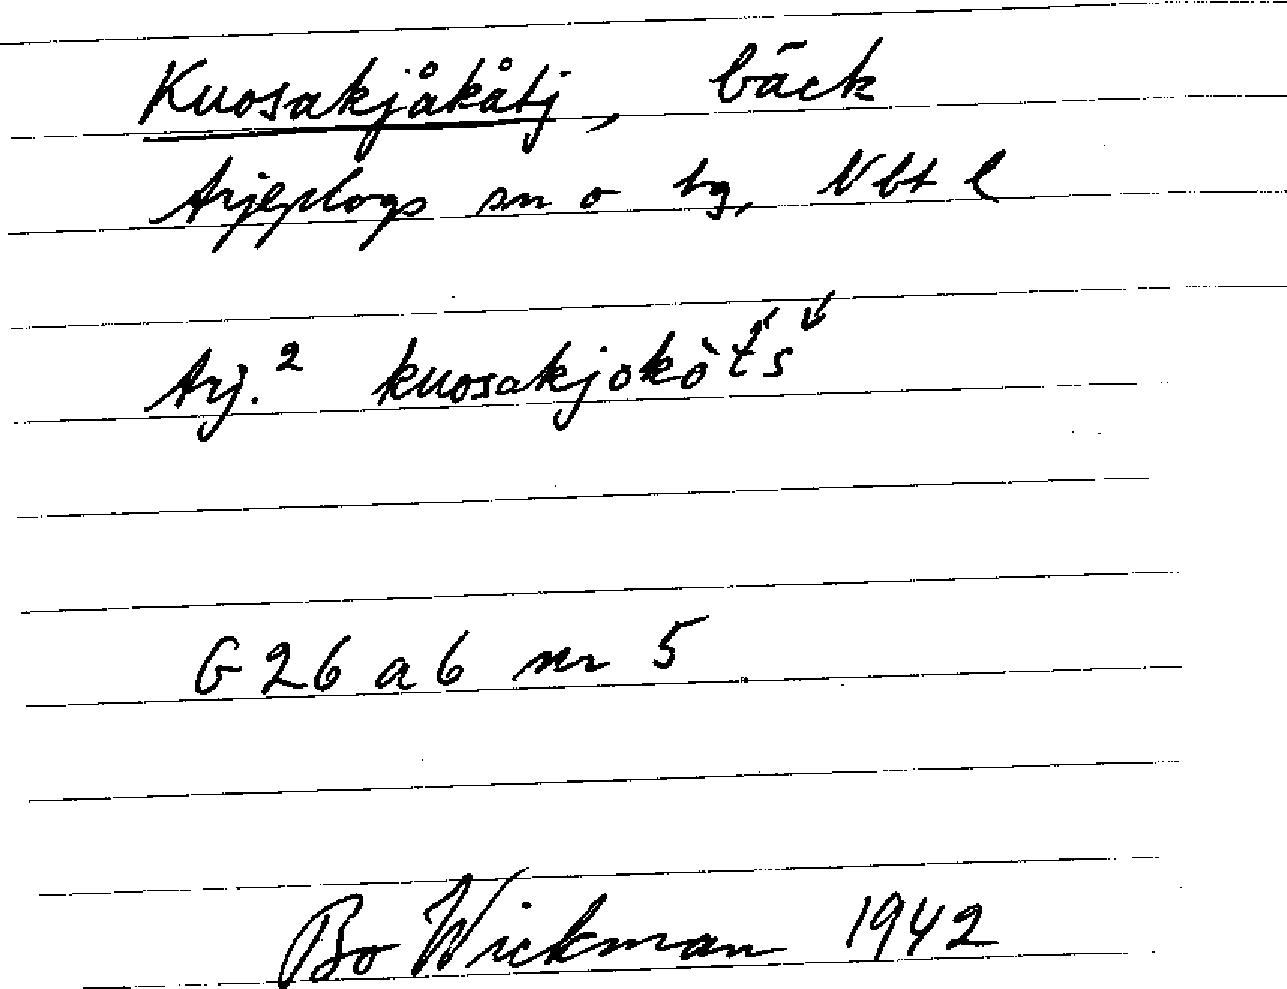 Kuosakjåkåtj, bäck
Arjeplogs sn o tg, Nbt l
Arj.² kuosakjokò t́š
G 26 a 6 nr 5
Bo Wickman 1942